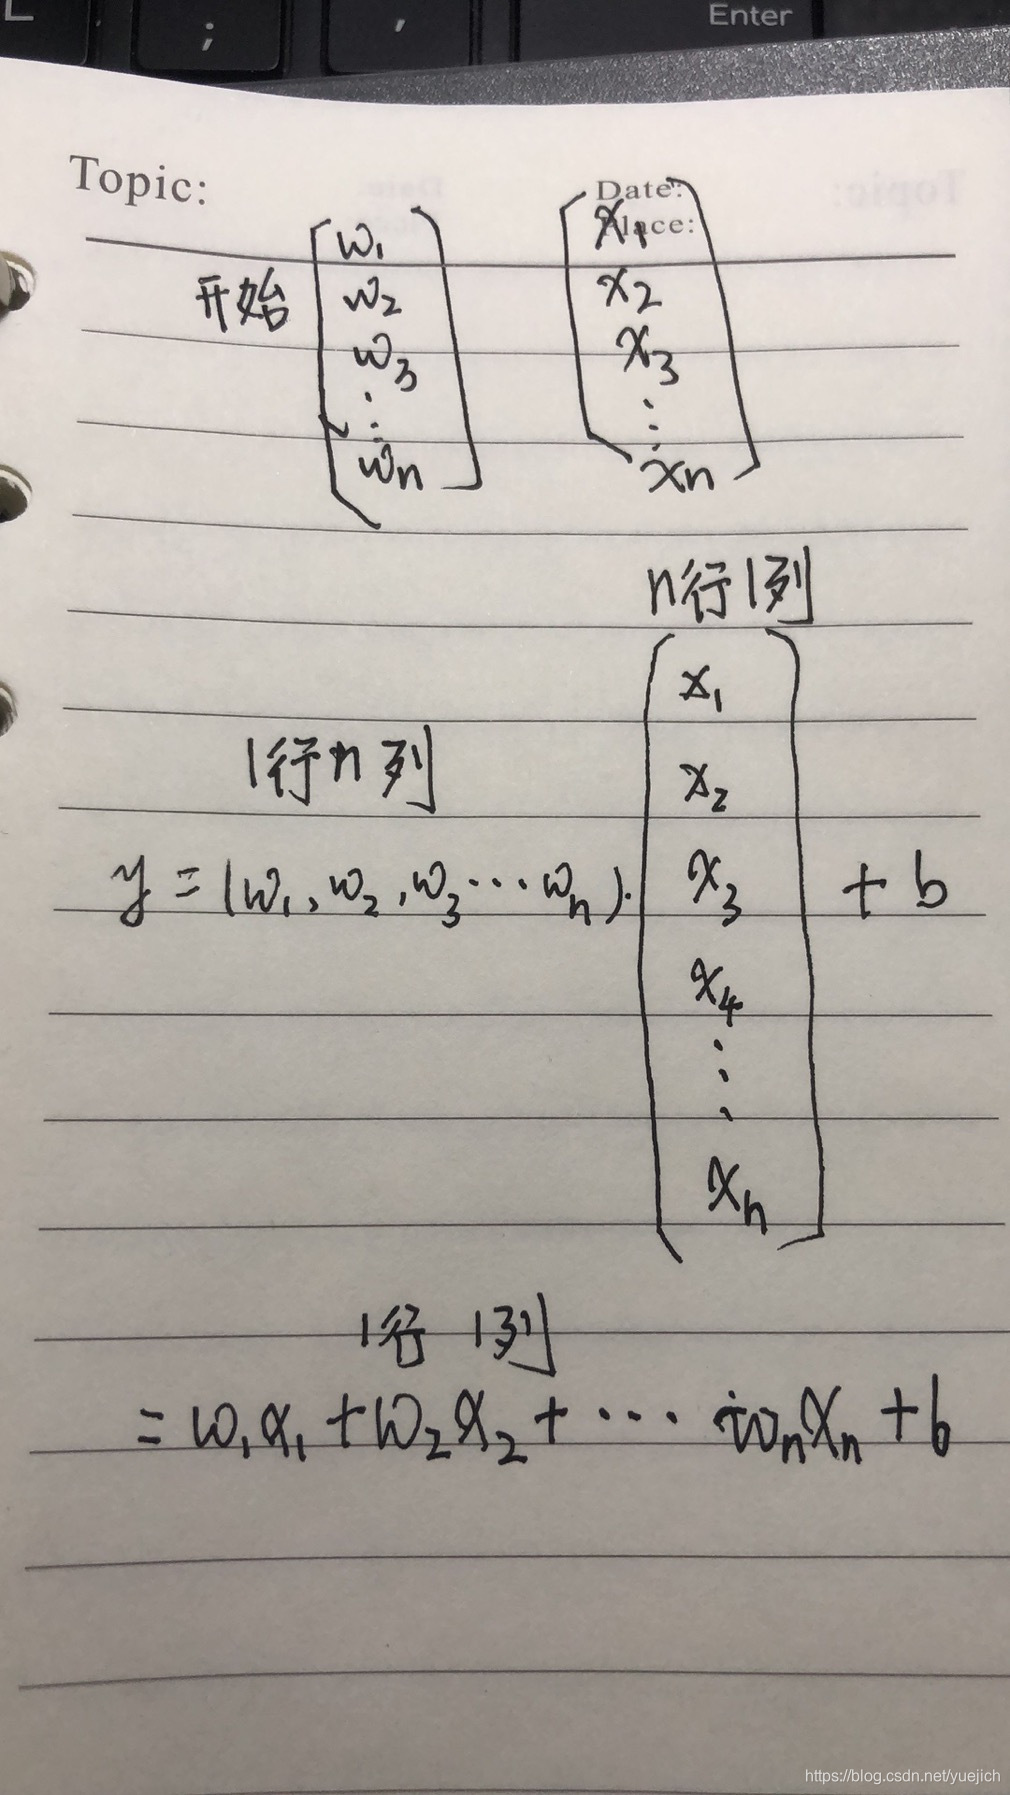 Enter
;
,
Topic:
Date:
Place:
开始
w₁ x₁
w₂ x₂
w₃ x₃
⋮ ⋮
wₙ xₙ
n行1列
1行n列
x₁
x₂
y = (w₁, w₂, w₃ ··· wₙ) · x₃ + b
x₄
⋮
xₙ
1行 1列
= w₁x₁ + w₂x₂ + ··· wₙxₙ + b
https://blog.csdn.net/yuejich